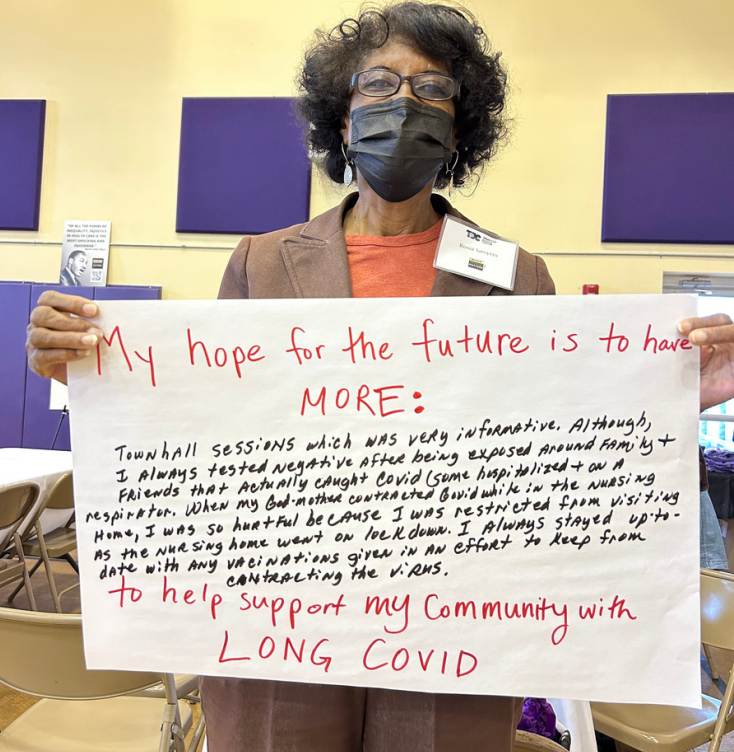 "OF ALL THE FORMS OF
INEQUALITY, INJUSTICE
IN HEALTH CARE IS THE
MOST SHOCKING AND
INHUMANE."
My hope for the future is to have
MORE:
Townhall sessions which was very informative. Although,
I Always tested negative after being exposed around family +
Friends that actually caught Covid (some hospitalized + on a
respirator. When my God-mother contracted Covid while in the nursing
Home, I was so hurtful because I was restricted from visiting
As the nursing home went on lockdown. I Always stayed up-to-
date with any vacinations given in an effort to keep from
contracting the virus.
to help support my Community with
LONG COVID